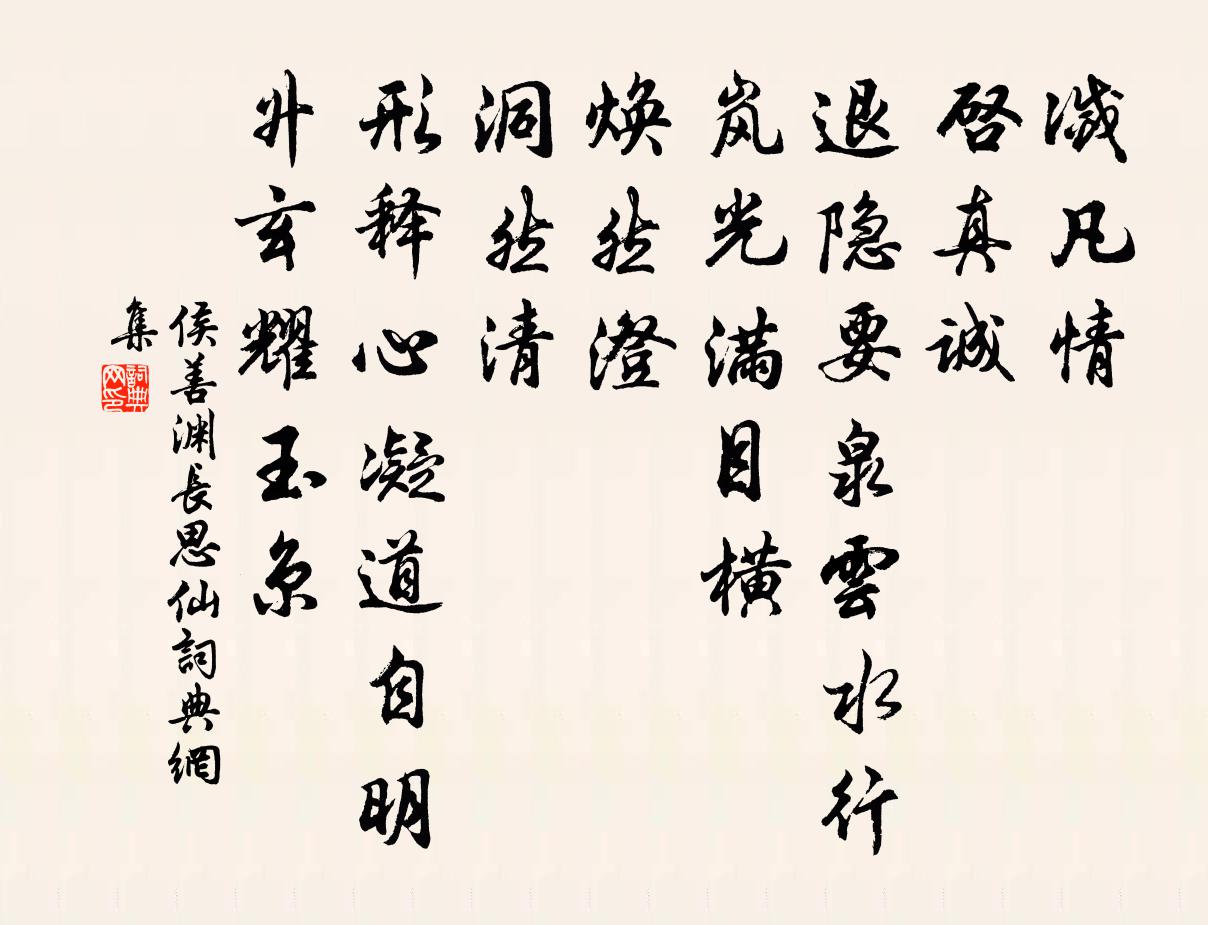 滅凡情
啓真誠
退隐要泉雲水行
岚光满目横
焕然澄
洞然清
形释心凝道自明
升玄耀玉京
侯善渊長思仙詞典網
集
詞典網印